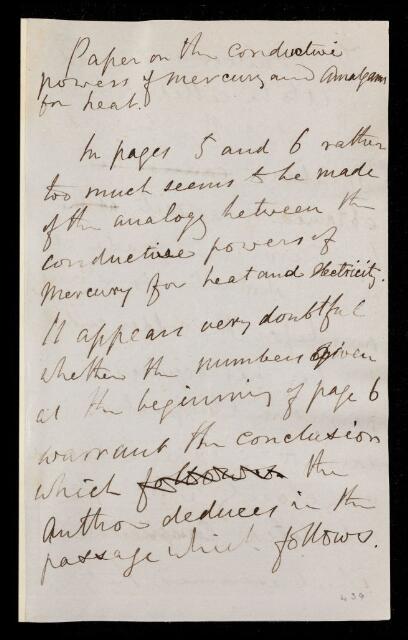 Paper on the conductive
powers of mercury and Amalgams
for heat.
In pages 5 and 6 rather
too much seems to be made
of the analogy between the
conductive powers of
Mercury for heat and Electricity.
It appears very doubtful
whether the numbers given
at the beginning of page 6
warrant the conclusion
which followin the
Author deduces in the
passage which follows.
434